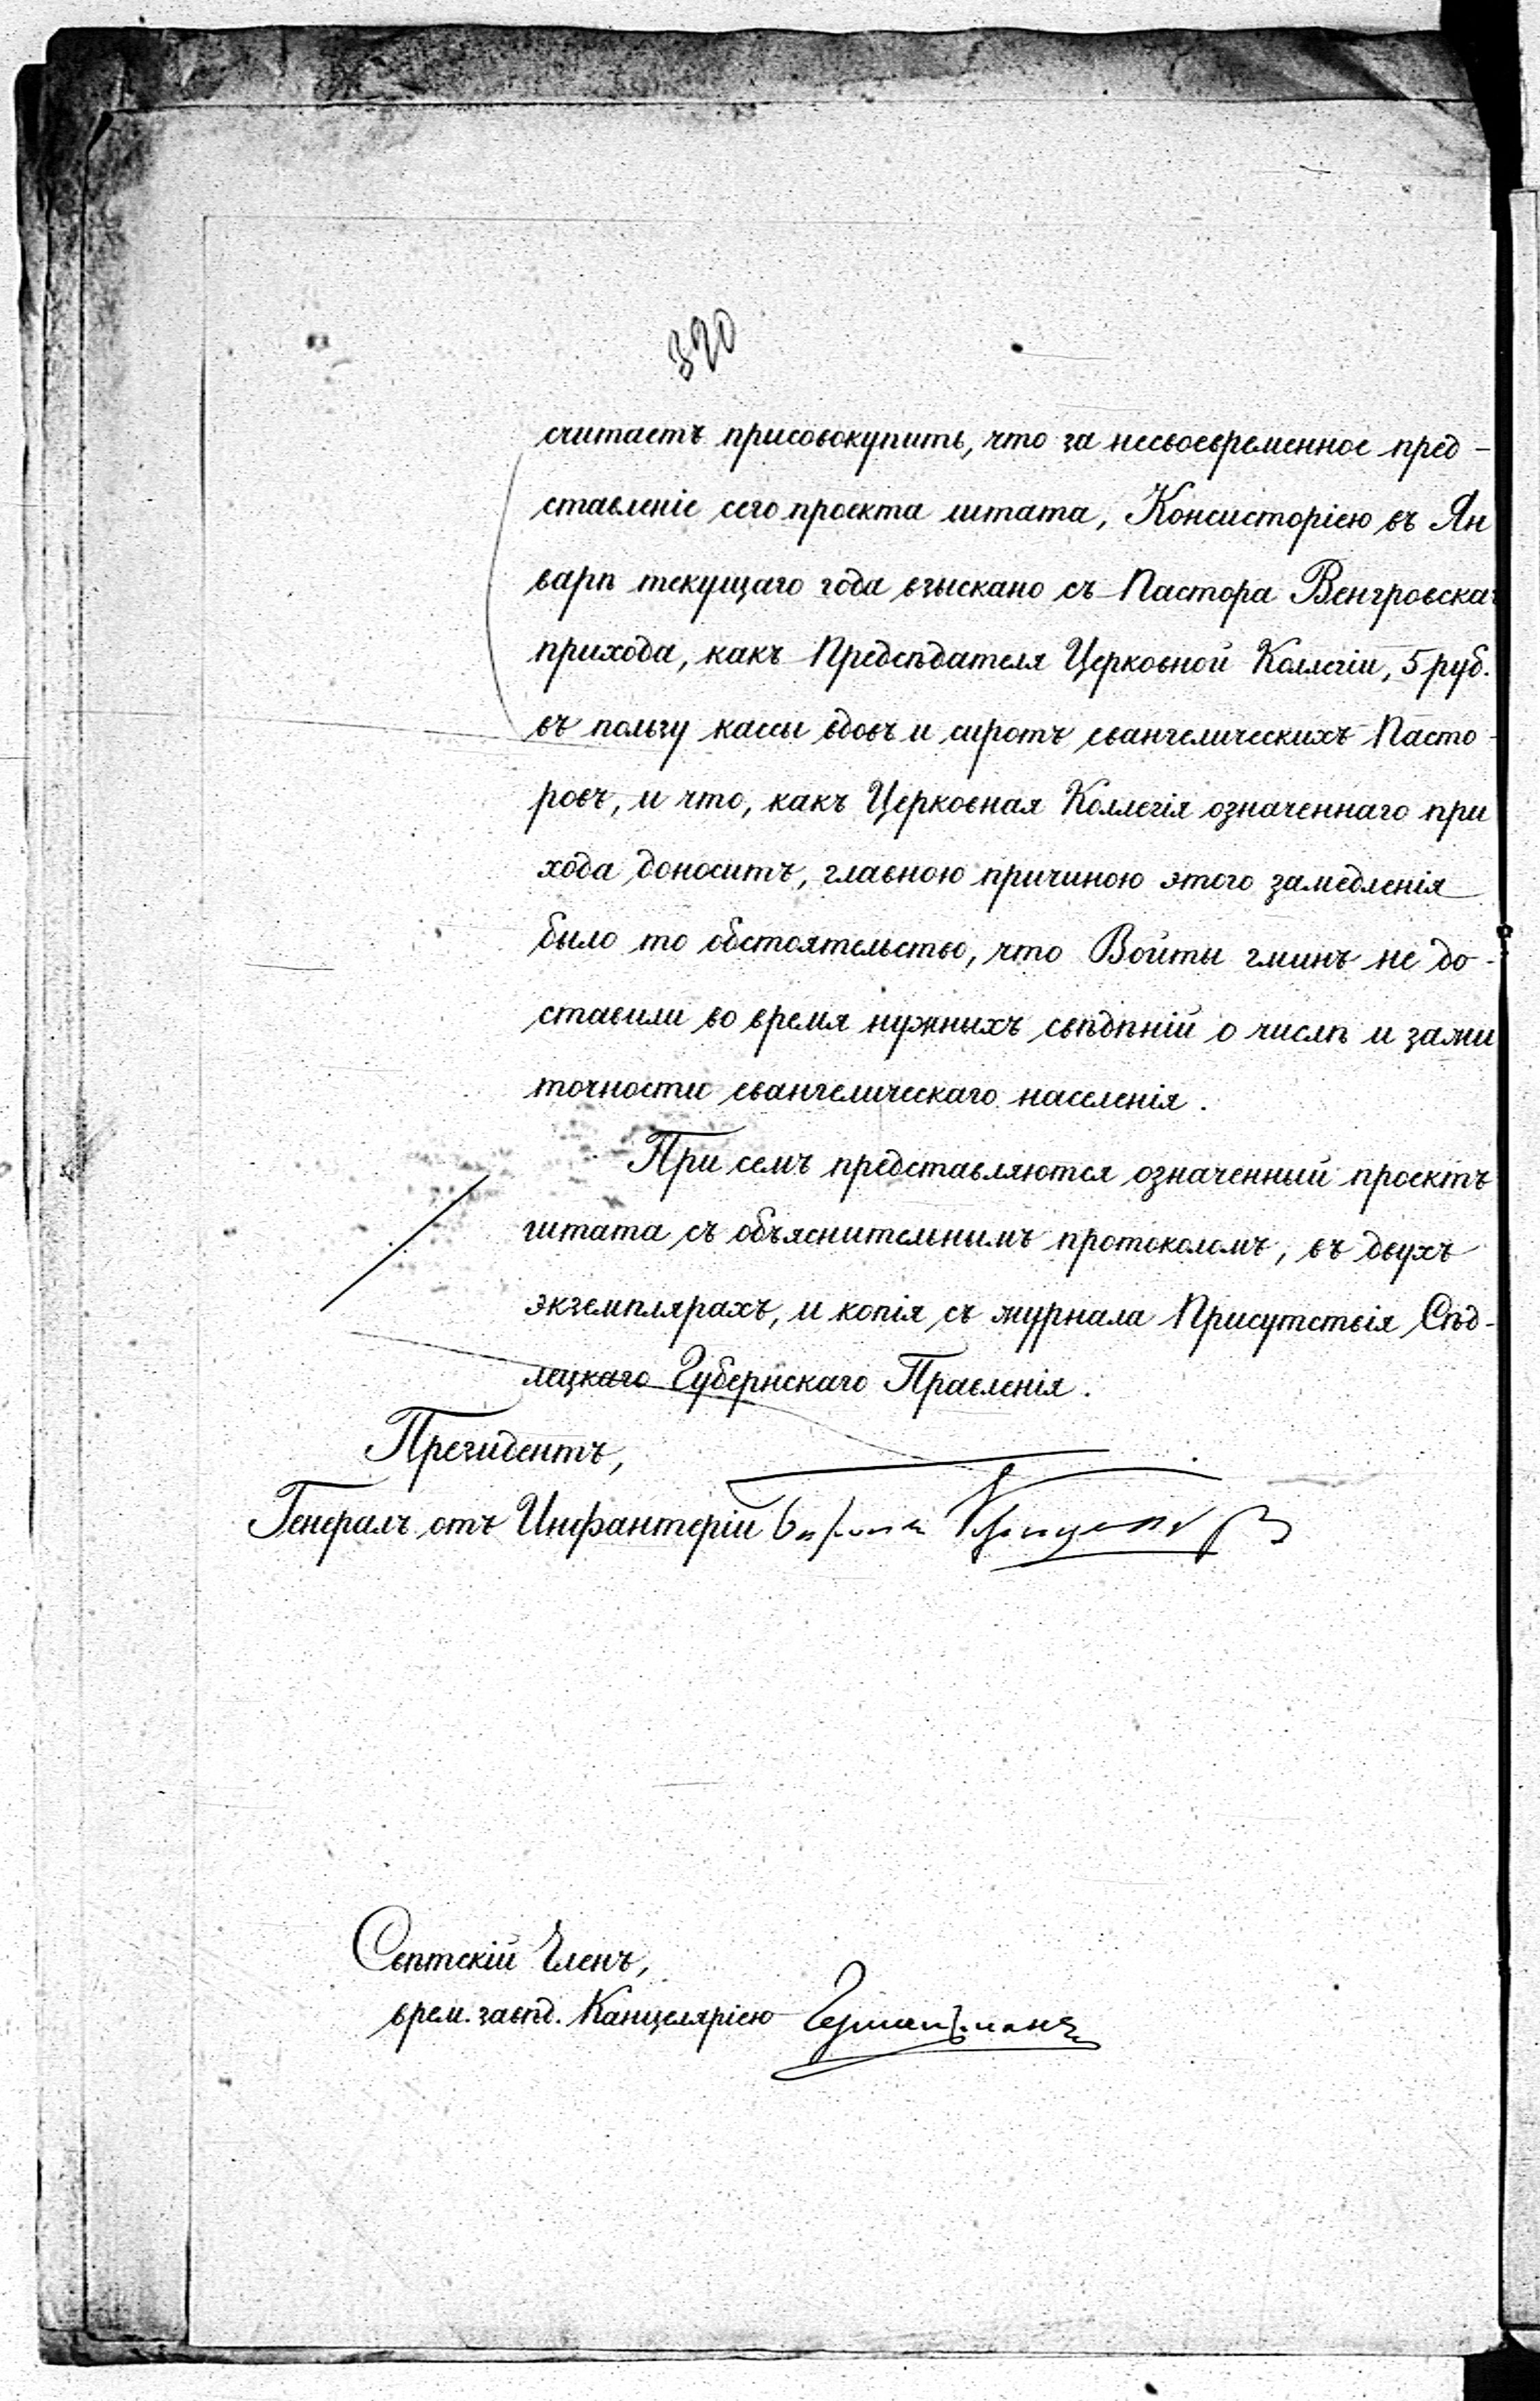 320
считаетъ присовокупить, что за несвоевременное пред-
ставленіе сего проекта штата, Консисторіею въ Ян
варѣ текущаго года взыскано съ Пастора Венгровска
прихода, какъ Предсѣдателя Церковной Коллегіи, 5 руб.
въ пользу кассы вдовъ и сиротъ евангелическихъ Пасто-
ровъ, и что, какъ Церковная Коллегія означеннаго при
хода доноситъ, главною причиною этого замедленія
было то обстоятельство, что Войты гминъ не до-
ставили во время нужныхъ свѣдѣній о числѣ и зажи
точности евангелическаго населенія.
При семъ представляются означенный проектъ
штата съ объяснительнымъ протоколомъ, въ двухъ
экземплярахъ, и копія съ журнала Присутствія Сѣд-
лецкаго Губернскаго Правленія.
Президентъ,
Генералъ отъ Инфантеріи
Свѣтскій Членъ,
врем. завѣд. Канцеляріею